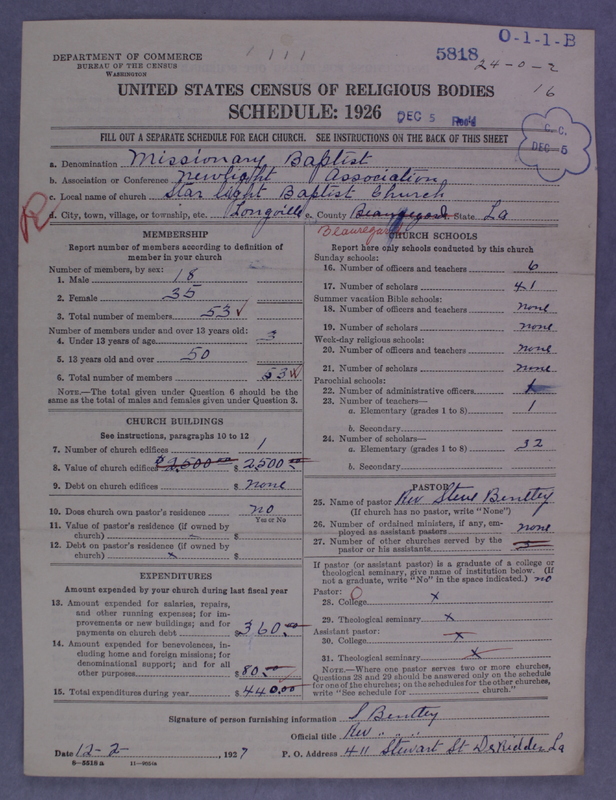 O-1-1-B
5818
24-0-2
16
DEPARTMENT OF COMMERCE
BUREAU OF THE CENSUS
WASHINGTON
UNITED STATES CENSUS OF RELIGIOUS BODIES
SCHEDULE: 1926
DEC 5 Rec'd
C. C.
DEC 5
FILL OUT A SEPARATE SCHEDULE FOR EACH CHURCH. SEE INSTRUCTIONS ON THE BACK OF THIS SHEET
a. Denomination Missionary Baptist
b. Association or Conference Newlight Association
c. Local name of church Star light Baptist Church
R
d. City, town, village, or township, etc. Longville e. County Beauregard State La
Beauregard
MEMBERSHIP
Report number of members according to definition of
member in your church
Number of members, by sex:
1. Male 18
2. Female 35
3. Total number of members 53
Number of members under and over 13 years old:
4. Under 13 years of age 3
5. 13 years old and over 50
6. Total number of members 53
NOTE.—The total given under Question 6 should be the
same as the total of males and females given under Question 3.
CHURCH BUILDINGS
See instructions, paragraphs 10 to 12
7. Number of church edifices 1
8. Value of church edifices $2,500 00 $ 2500 00
9. Debt on church edifices $ none
10. Does church own pastor's residence no
Yes or No
11. Value of pastor's residence (if owned by
church) $
12. Debt on pastor's residence (if owned by
church) x $
EXPENDITURES
Amount expended by your church during last fiscal year
13. Amount expended for salaries, repairs,
and other running expenses; for im-
provements or new buildings; and for
payments on church debt $ 360.00
14. Amount expended for benevolences, in-
cluding home and foreign missions; for
denominational support; and for all
other purposes $ 80.00
15. Total expenditures during year $ 440.00
CHURCH SCHOOLS
Report here only schools conducted by this church
Sunday schools:
16. Number of officers and teachers 6
17. Number of scholars 41
Summer vacation Bible schools:
18. Number of officers and teachers none
19. Number of scholars none
Week-day religious schools:
20. Number of officers and teachers none
21. Number of scholars none
Parochial schools:
22. Number of administrative officers 1
23. Number of teachers—
a. Elementary (grades 1 to 8) 1
b. Secondary
24. Number of scholars—
a. Elementary (grades 1 to 8) 32
b. Secondary
PASTOR
25. Name of pastor Rev Steve Bentley
(If church has no pastor, write "None")
26. Number of ordained ministers, if any, em-
ployed as assistant pastors none
27. Number of other churches served by the
pastor or his assistants
If pastor (or assistant pastor) is a graduate of a college or
theological seminary, give name of institution below. (If
not a graduate, write "No" in the space indicated.) no
Pastor:
28. College x
29. Theological seminary x
Assistant pastor:
30. College x
31. Theological seminary x
NOTE.—Where one pastor serves two or more churches,
Questions 28 and 29 should be answered only on the schedule
for one of the churches; on the schedules for the other churches,
write "See schedule for church."
Signature of person furnishing information S Bentley
Official title Rev " " "
Date 12-2- , 1927 P. O. Address 411 Stewart St DeRidder La
8—5518 a